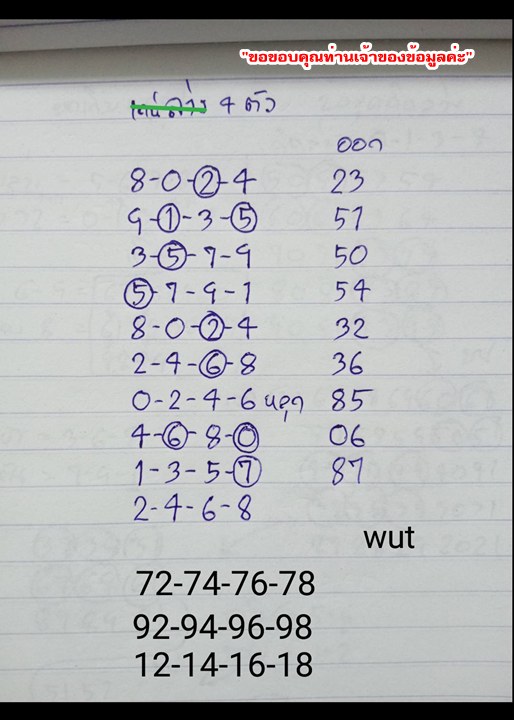 "ขอขอบคุณท่านเจ้าของข้อมูลค่ะ"
เด่นล่าง 4 ตัว
ออก
8-0-2-4 23
9-1-3-5 51
3-5-7-9 50
5-7-9-1 54
8-0-2-4 32
2-4-6-8 36
0-2-4-6 หลุด 85
4-6-8-0 06
1-3-5-7 87
2-4-6-8
wut
72-74-76-78
92-94-96-98
12-14-16-18